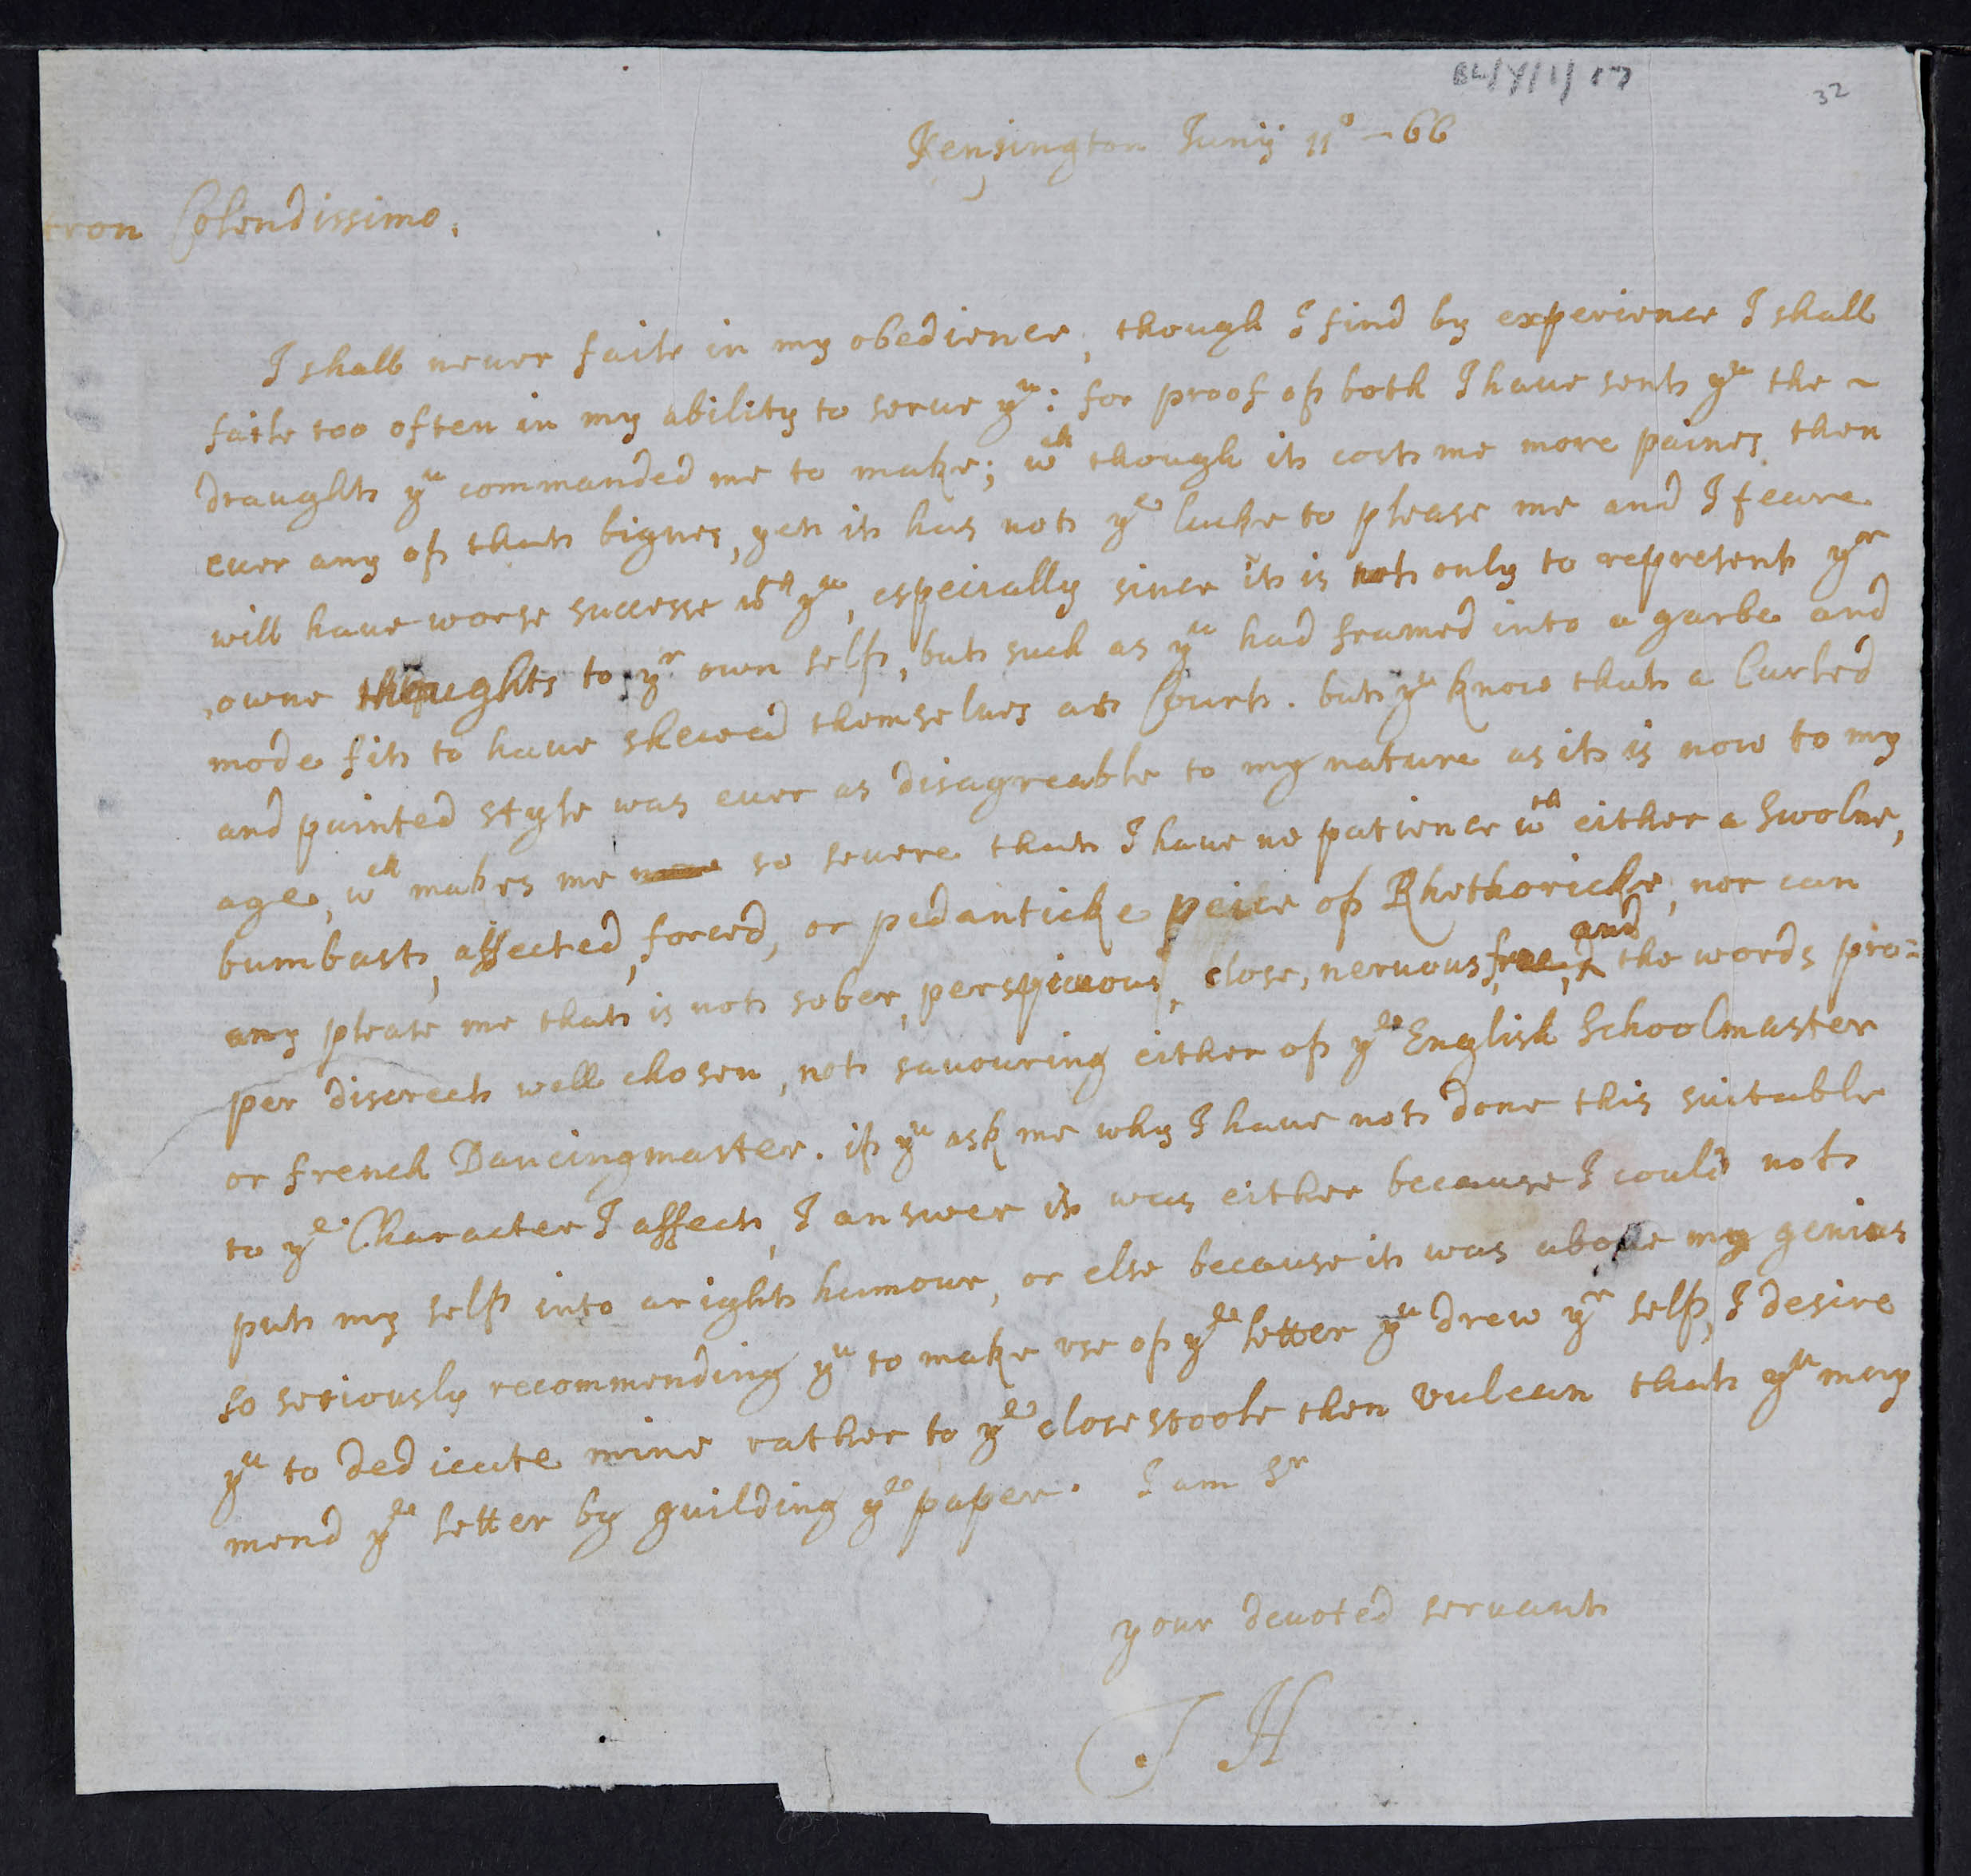 BL/Y/1/17
32
Kensington Junij 11° - 66
tron Colendissimo,
I shall never faile in my obedience, though I find by experience I shall
faile too often in my ability to serue yu: for proof of both I haue sent yu the ~
draught yu commanded me to make; wch though it cost me more paines then
euer any of that bignes, yet it has not ye lucke to please me and I feare
will haue worse successe wth yu, espeically since it is not only to represent yor
owne thoughts to yr own self, but such as yu had framed into a garbe and
mode fit to haue shewed themselues at Court. but yu know that a Curled
and painted style was euer as disagreable to my nature as it is now to my
age, wch makes me so seuere that I haue no patience wth either a Swolne,
bumbast, affected, forced, or pedanticke peice of Rhethoricke, nor can
any please me that is not sober, perspicuous, close, neruous, free, and the words pro=
per discreet well chosen, not sauouring either of ye English Schoolmaster
or french Dancingmaster. if yu ask me why I haue not done this suitable
to ye Character I affect, I answer it was either because I could not
put my self into a right humour, or else because it was aboue my genius
so seriously recommending yu to make vse of ye letter yu drew yr self, I desire
yu to dedicate mine rather to ye close stoole then vulcan that yu may
mend ye letter by guilding ye paper. I am Sr
your deuoted seruant
J H